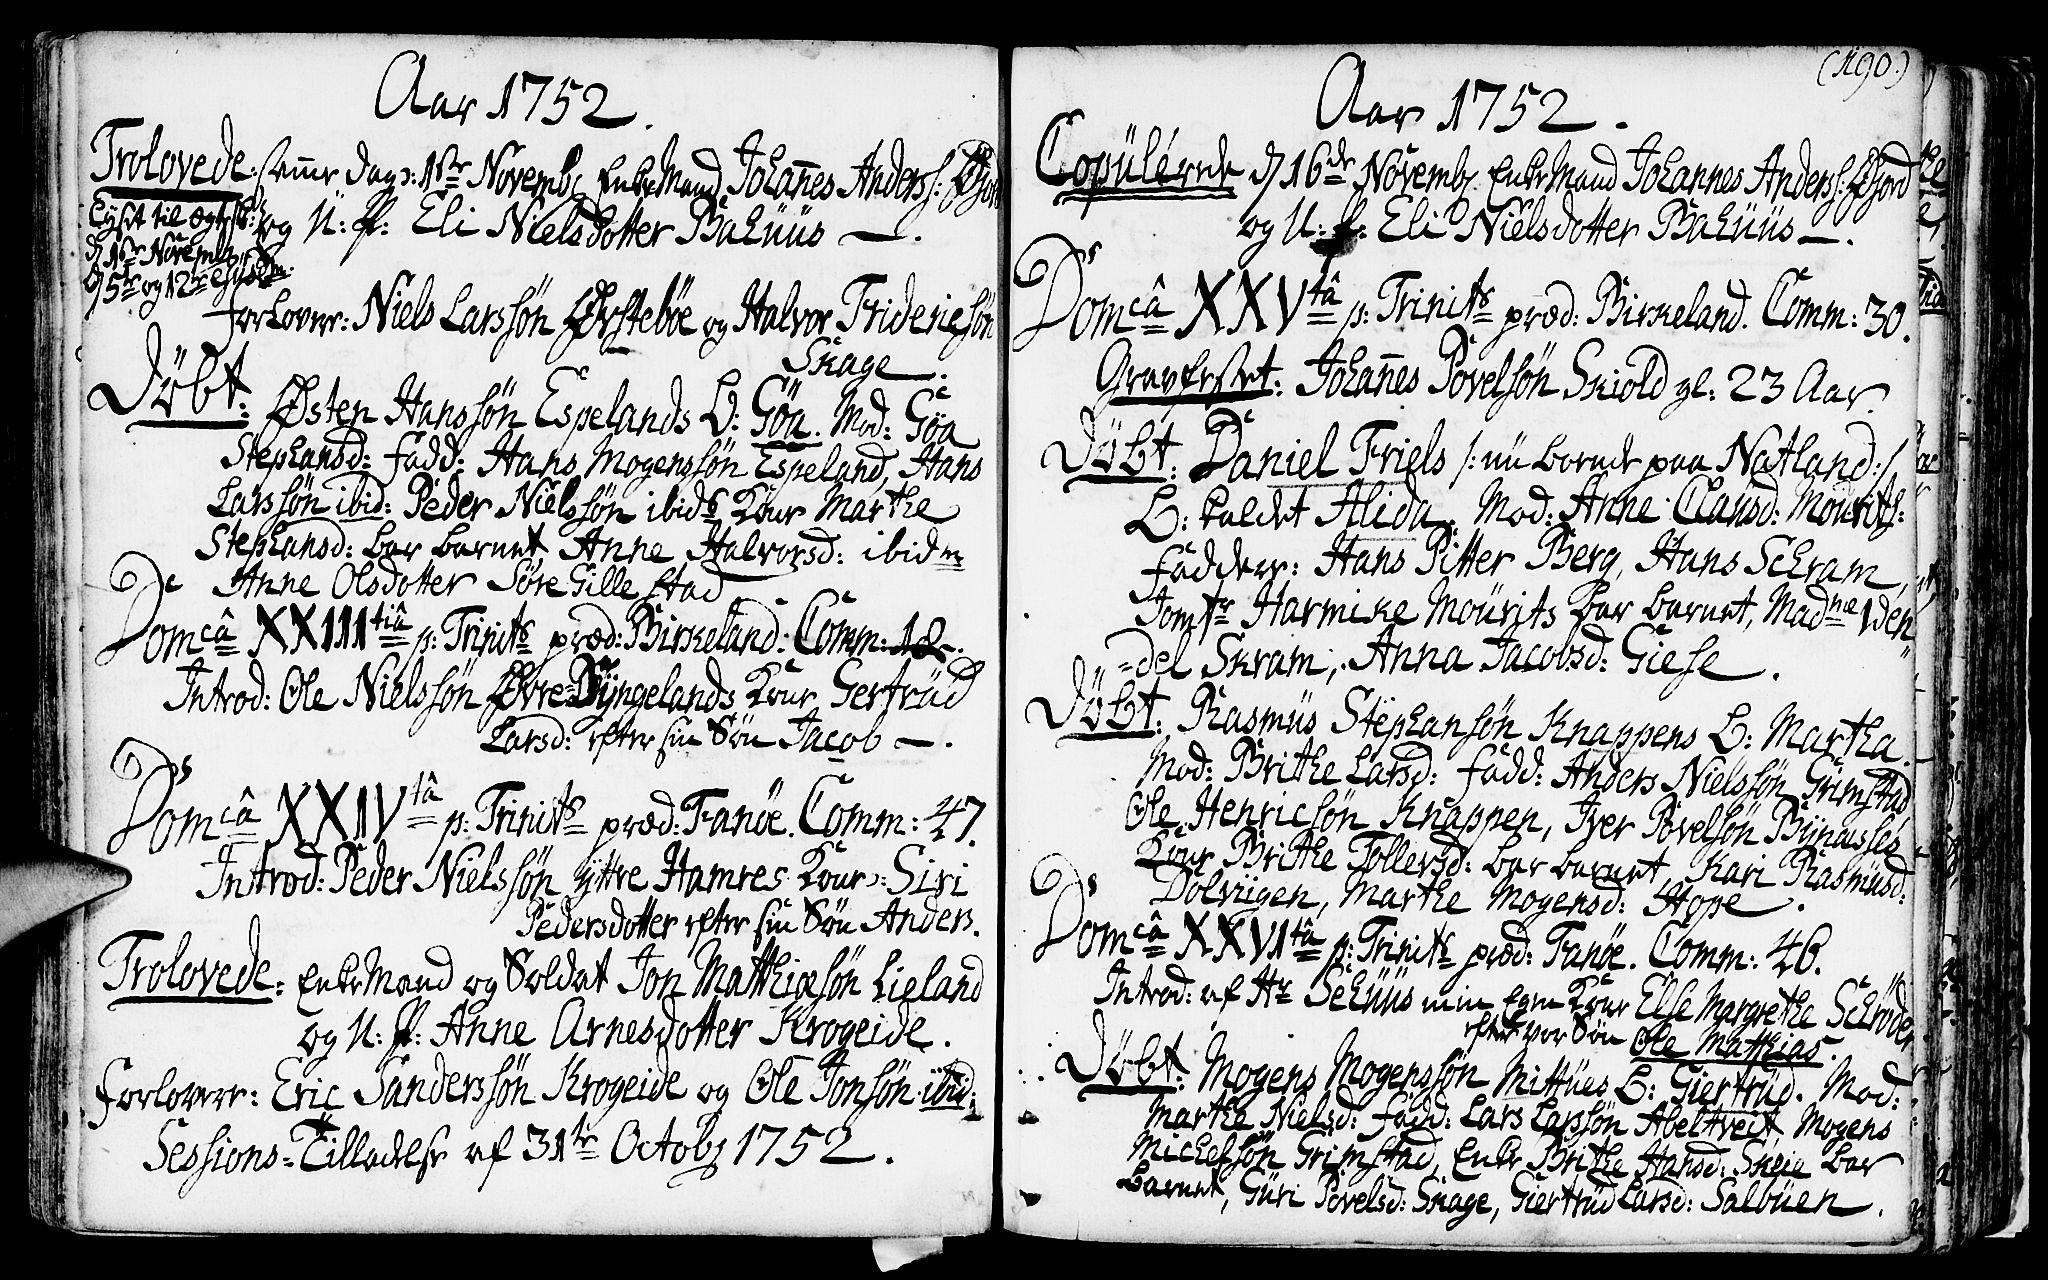 Aar 1752.
Trolovede: samme Dag: 1ste Novemb. Enke Mand Johañes Anders: Øsjord
Lyst til Ægtesk:
d. 1ste Novemb.
d 5te og 12te ejusdm.
og U: P: Eli Nielsdotter Bahuus —.
Forlovere: Niels Larssön Ørsteböe og Halvor Fridericsön
Skage.
Döbt: Østen Hanssön Espelands B: Göa. Mod: Göa
Stephansd: Fadd: Hans Mogenssön Espeland, Hans
Larssön ibid: Peder Nielssön ibids Kone Marthe
Stephansd: bar barnet Anne Halvorsd: ibidm
Anne Olsdotter Söre Gillestad
Domcâ XXIIItiâ p: Trinits præd: Birkeland. Comm: 18.
Introd: Ole Nielssön Øvre-Byngelands Kone Gertrüd
Larsd: efter sin Sön Jacob —.
Domcâ XXIVtâ p: Trinits præd: Fanöe. Comm: 47.
Introd: Peder Nielssön yttre Hamres Kone: Siri
Pedersdotter efter sin Sön Anders.
Trolovede: Enke Mand og Soldat Jon Matthiæsön Lieland
og U: P: Anne Arnesdotter Krogeide.
Forlovere: Eric Sanderssön Krogeide og Ole Jonsön ibid:
Sessions-Tilladelse af 31te Octobr 1752.
(190.)
Aar 1752.
Copülerede d 16de Novemb. Enke Mand Johannes Anders: Øsjord
og U: P: Eli Nielsdotter Bahuus —.
Domcâ XXVtâ p: Trinits præd: Birkeland. Comm: 30.
Gravfestet: Johañes Povelsön Skiold gl: 23 Aar.
Döbt: Daniel Friels /: nu boende paa Natland :/
B: kaldet Alida. Mod: Anne Clausd: Mourits:
Faddere: Hans Pitter Berg, Hans Schram,
Jomfr Harmike Mourits bar barnet, Madme Wen-
-del Skram, Anna Jacobsd: Giese.
Döbt: Rasmüs Stephansön Knappens B: Martha
Mod: Brithe Larsd: Fadd: Anders Nielssön Grimstad
Ole Henricsön Knappen, Iver Povelsön Bynæssets
Kone Brithe Tollersd: bar barnet, Kari Rasmüsd:
Dolviigen, Marthe Mogensd: Hope.
Domcâ XXVItâ p: Trinits præd: Fanöe. Comm: 46.
Introd: af Hr Schuus min egen Kone Else Margrethe Schröder
efter vor Sön Ole Matthias.
Döbt: Mogens Mogenssön Mittües B: Giertrüd. Mod:
Marthe Nielsd: Fadd: Lars Larssön Abeltveit, Mogens
Michelsön Grimstad, Enke Brithe Hansd: Skeie bar
barnet, Güri Povelsd: Skage, Giertrüd Larsd: Salbüen.